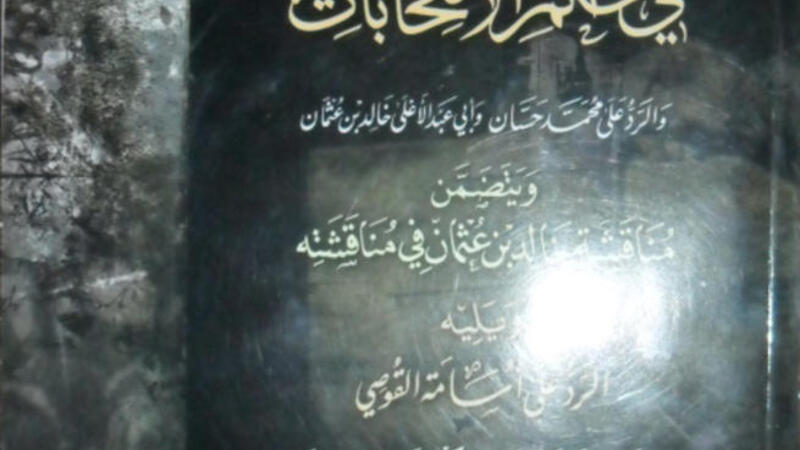 في حكم الانتخابات
وَالرَّدُّ عَلَى مُحَمَّد حَسَّان وَأَبِي عَبْدِ الأَعْلَى خَالِد بْن عُثْمَان
وَيَتَضَمَّن
مُنَاقَشَة خَالِد بْن عُثْمَان فِي مُنَاقَشَتِه
وَيَلِيه
الرَّدُّ عَلَى أُسَامَة القُوصِي